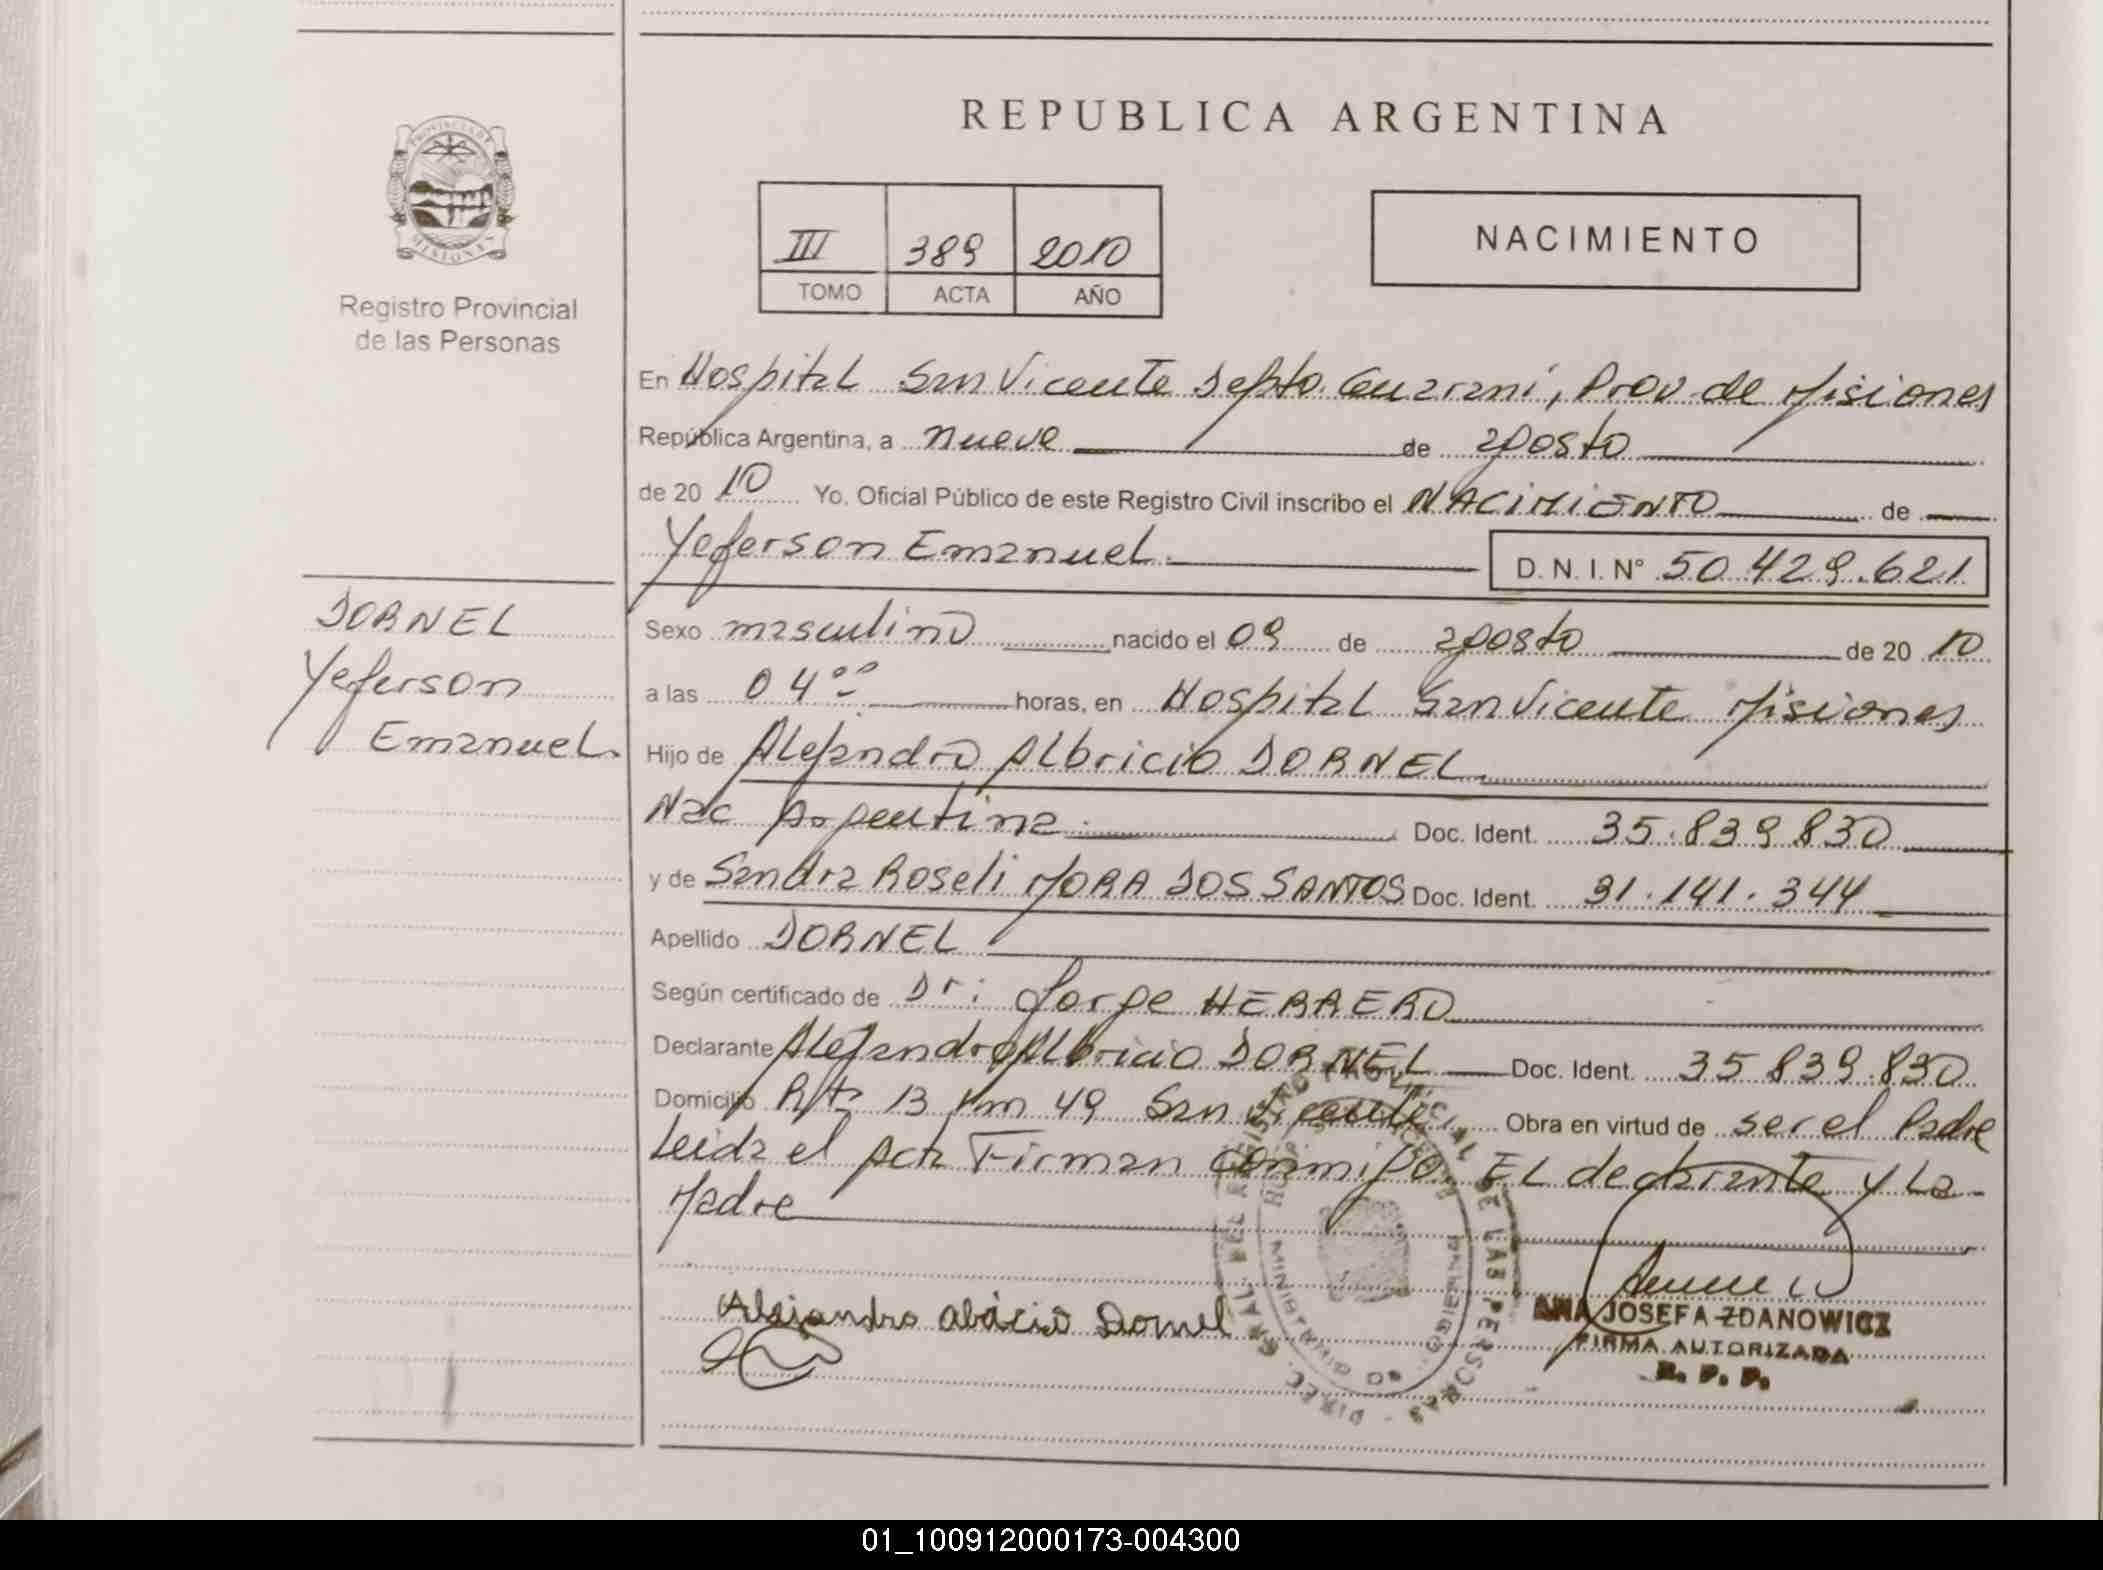 REPUBLICA ARGENTINA
PROVINCIA DE MISIONES
Registro Provincial
de las Personas
III 389 2010
TOMO ACTA AÑO
NACIMIENTO
En Hospital San Vicente Depto. Guarani, Prov de Misiones
República Argentina, a nueve de agosto
de 20 10 Yo. Oficial Público de este Registro Civil inscribo el NACIMIENTO de
Yeferson Emanuel. D. N. I. N° 50.429.621
DORNEL
Yeferson
Emanuel.
Sexo masculino nacido el 09 de agosto de 20 10
a las 04 00 horas, en Hospital San Vicente Misiones
Hijo de Alejandro Albricio DORNEL
Nac Argentina. Doc. Ident. 35.839.830
y de Sandra Roseli MORA DOS SANTOS Doc. Ident. 31.141.344
Apellido DORNEL
Según certificado de Dr: Jorge HERRERO
Declarante Alejandro Albricio DORNEL Doc. Ident. 35.839.830
Domicilio Rta 13 km 49 San Vicente Obra en virtud de ser el Padre
Leida el acta Firman conmigo EL declarante y La
Madre
Alejandro Dornel
ANA JOSEFA ZDANOWICZ
FIRMA AUTORIZADA
R. P. P.
DIREC. GRAL. DEL REGISTRO PROVINCIAL DE LAS PERSONAS
01_100912000173-004300